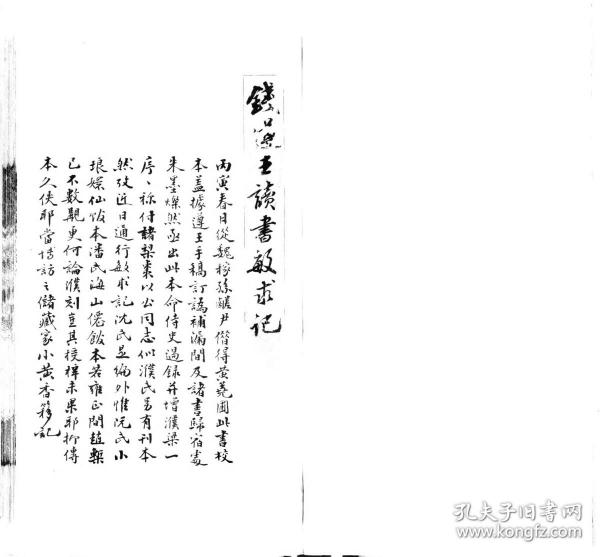 錢遵王讀書敏求記
丙寅春日從魏稼孫鹺尹借得黃蕘圃此書校
本蓋據遵王手稿訂譌補漏間及諸書歸宿處
朱墨燦然亟出此本命侍史過錄并增濮梁一
序序稱付諸棃棗以公同志似濮氏另有刊本
然攷近日通行敏求記沈氏 編外惟阮氏小
琅嬛仙館本潘氏海山僊館本若雍正間趙槧
已不數覯更何論濮刻豈其授梓未果耶抑傳
本久佚耶當博訪之儲藏家小黃香簃記
孔夫子旧书网
www.kongfz.com